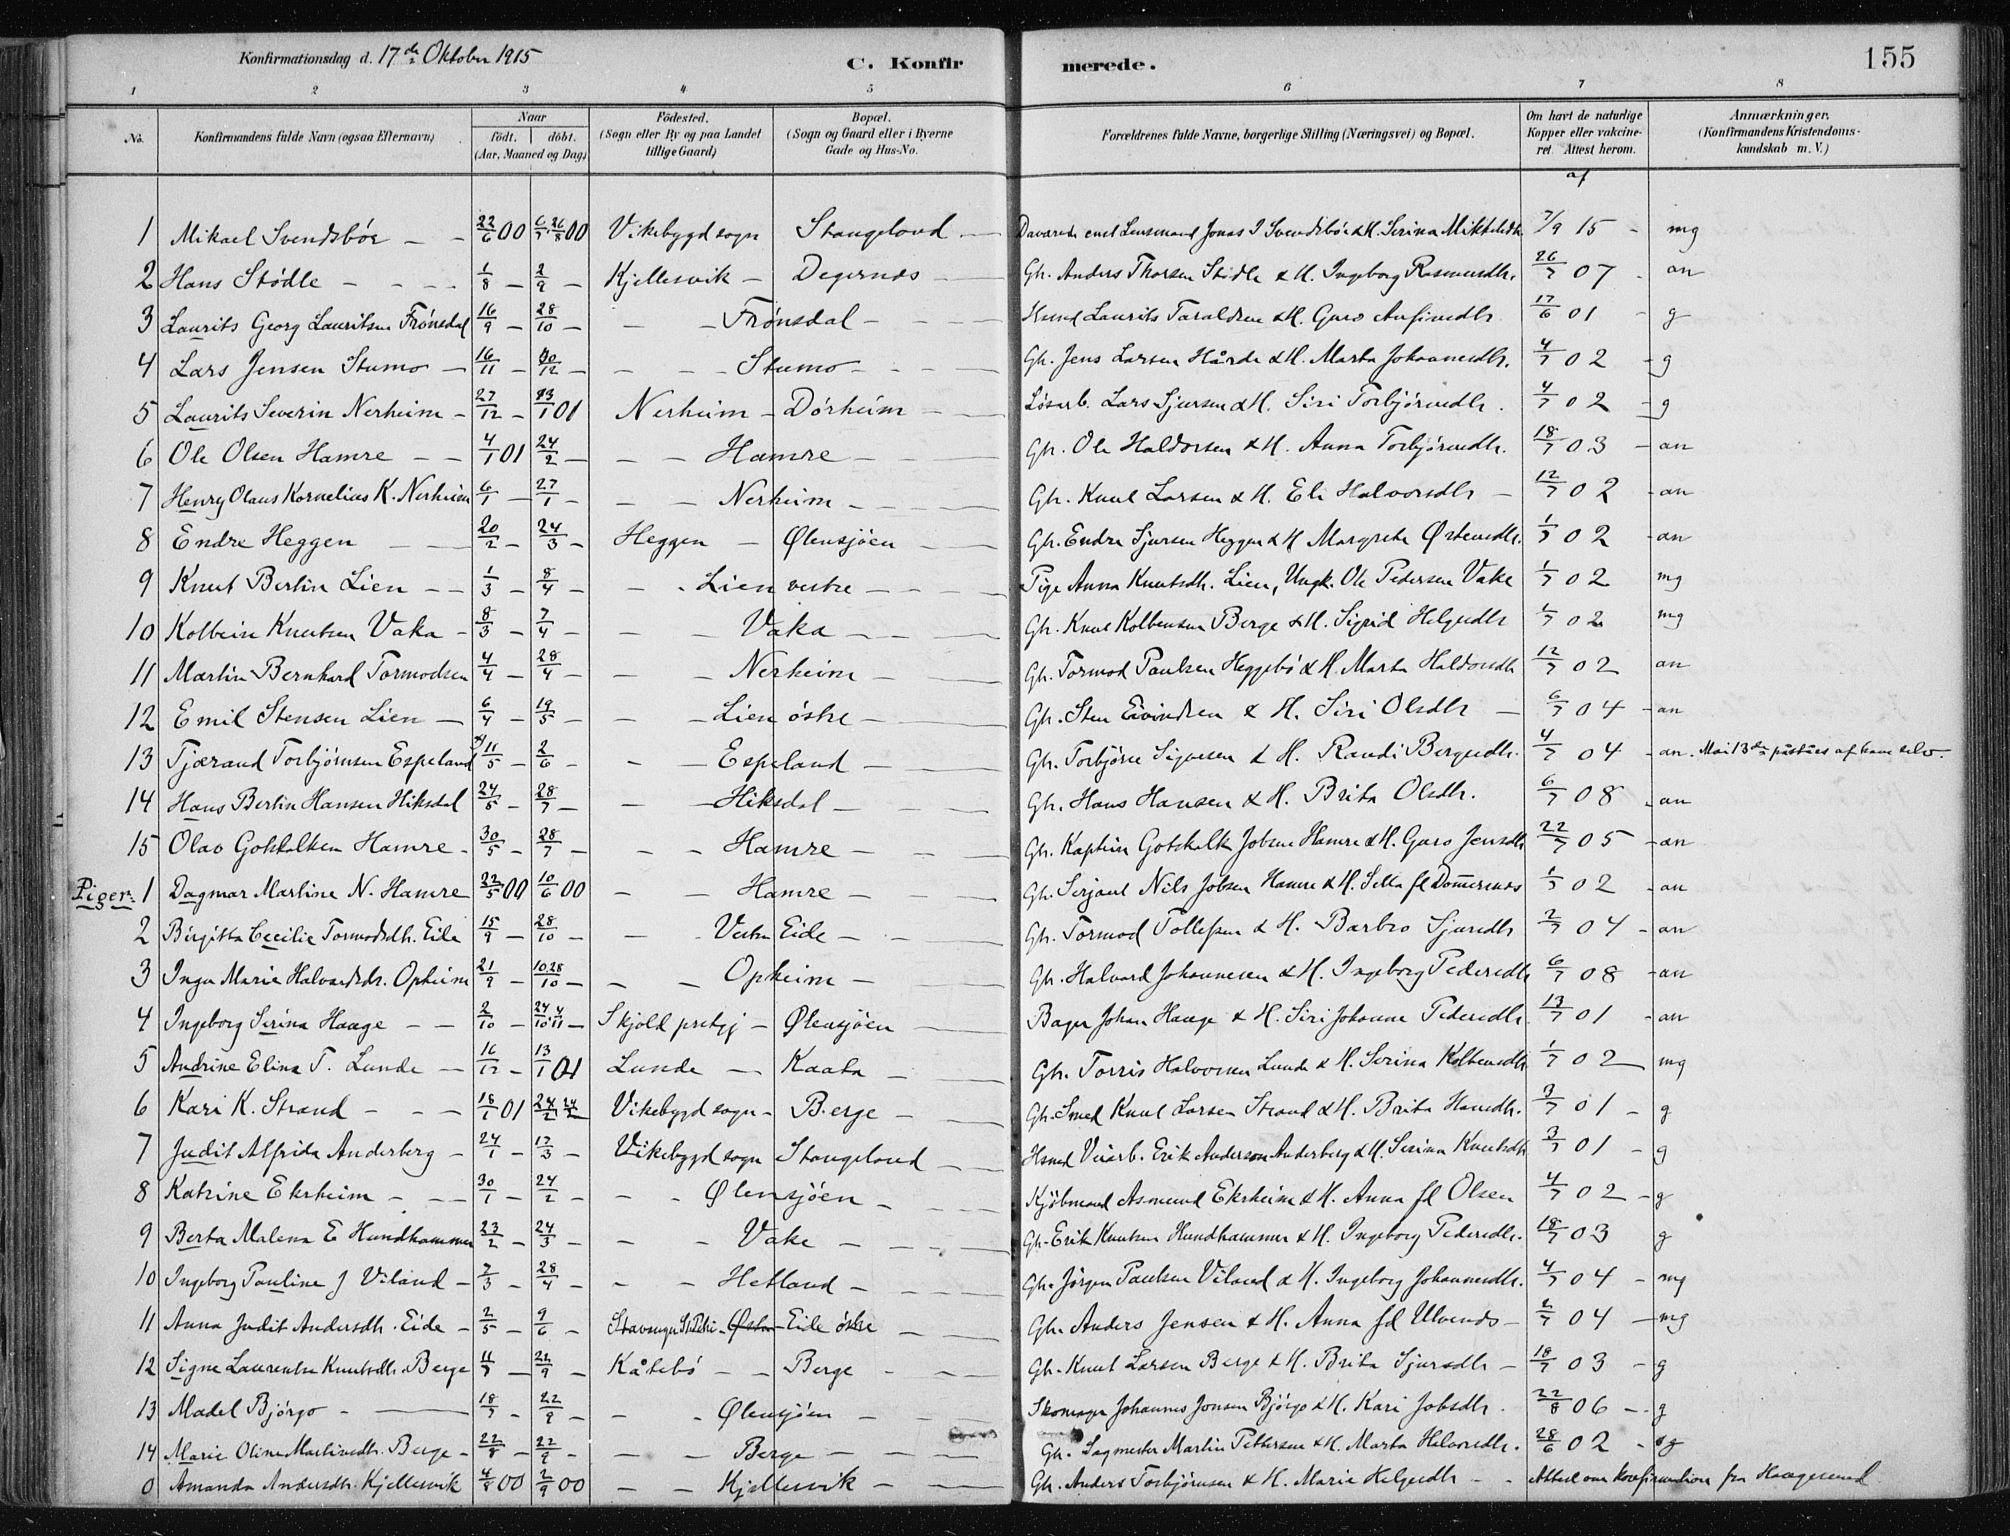 Konfirmationsdag d. 17de Oktober 1915 C. Konfirmerede. 155
1 2 3 4 5 6 7 8
No. Konfirmandens fulde Navn (ogsaa Efternavn) Naar født. døbt. (Aar, Maaned og Dag) Fødested. (Sogn eller By og paa Landet tillige Gaard) Bopæl. (Sogn og Gaard eller i Byerne Gade og Hus-No. Forældrenes fulde Navne, borgerlige Stilling (Næringsvei) og Bopæl. Om havt de naturlige Kopper eller vakcineret. Attest herom. Anmærkninger. (Konfirmandens Kristendomskundskab m. V.)
af
1 Mikael Svendsbøe 22/6 00 6/7 26/8 00 Vikebygd sogn Stangeland Daværende enst Lensmand Jonas J Svendsbøe & H. Serina Mikkelsdtr 7/9 15 - mg
2 Hans Stødle 1/8 - 2/9 - Kjellesvik - Degernes Gh. Anders Thorsen Stødle & H. Ingeborg Rasmusdtr. 26/7 07 - an
3 Laurits Georg Lauritsen Frønsdal 16/9 - 28/10 - - Frønsdal Husmd Laurits Taraldsen & H. Guro Anfindtr 17/6 01 - g
4 Lars Jensen Stumo 16/11 - 30/12 - - Stumo Gh. Jens Larsen Hårde & H. Marta Johannesdtr. 4/7 02 - g
5 Laurits Severin Nerheim 27/12 - 13/1 01 Nerheim - Dørheim Løsarb. Lars Sjursen & H. Siri Torbjørnsdtr. 4/7 02 - g
6 Ole Olsen Hamre 4/1 01 24/2 - - Hamre Gh. Ole Haldorsen & H. Anna Torbjørnsdtr. 18/7 03 - an
7 Henry Olaus Kornelius K. Nerheim 6/1 - 27/1 - - Nerheim Gh. Knut Larsen & H. Eli Halvorsdtr 12/7 02 - an
8 Endre Heggen 20/2 - 24/3 - Heggen - Ølensjøen Gh. Endre Sjursen Heggen & H Margreta Østensdtr. 1/7 02 - an
9 Knut Bertin Lien 1/3 - 8/4 - - Lien vestre Pige Anna Knutsdtr. Lien, Ungk. Ole Pedersen Vake 1/7 02 mg
10 Kolbein Knutsen Vaka 8/3 - 7/4 - - Vaka Gh. Knut Kolbensen Berge & H. Sigrid Helgesdtr 1/7 02 mg
11 Martin Bernhard Tormodsen 4/4 - 28/4 - - Nerheim Gh. Tormod Paulsen Heggebø & H. Marta Haldorsdtr 12/7 02 an
12 Emil Stensen Lien 6/4 - 19/5 - - Lien østre Gh. Sten Eivindsen & H. Siri Olsdtr 6/7 04 - an
13 Tjærand Torbjørnsen Espeland 11/5 - 2/6 - - Espeland Gh. Torbjørn Sigvesen & H. Randi Bergesdtr. 4/7 04 - an. Mai 13de påståes af ham selv.
14 Hans Bertin Hansen Hiksdal 24/5 - 28/7 - - Hiksdal Gh. Hans Hansen & H. Brita Olsdtr. 6/7 08 - an
15 Olav Gotskalken Hamre 30/5 - 28/7 - - Hamre Gh. Kaptein Gotskalk Jobsen Hamre & H. Guro Jensdtr 22/7 05 - an
Piger: 1 Dagmar Martine N. Hamre 22/5 00 10/6 00 - Hamre Gh. Serjant Nils Jobsen Hamre & H. Silla fd Dommersnes 1/7 02 - an
2 Birgitta Cecilie Tormodsdtr. Eide 15/9 - 28/10 - - Vestre Eide Gh. Tormod Tollefsen & H. Barbro Sjursdtr 2/7 04 - an
3 Inga Marie Halvardsdtr. Opheim 21/9 - 10.28/10 - - Opheim Gh. Halvard Johannesen & H. Ingeborg Pedersdtr 6/7 08 - an
4 Ingeborg Serina Hauge 2/10 - 24/10. 4/11 - Skjold prstgj - Ølensjøen Bager Johan Hauge & H. Siri Johanne Pedersdtr. 13/7 01 - an
5 Andrine Elina T. Lunde 16/12 - 13/1 01 Lunde - Kaata Gh. Torris Halvorsen Lunde & H. Serina Kolbensdtr 1/7 02 mg
6 Kari K. Strand 18/1 01 24/2 24/2 Vikebygd sogn - Berge Gh. Smed Knut Larsen Strand & H. Brita Hansdtr. 3/7 01 - g
7 Judit Alfrida Anderberg 24/1 - 17/3 - Vikebygd sogn Stangeland Husmd Veiarb. Erik Anderson Anderberg & H. Serina Knutsdtr 3/7 01 - g
8 Katrine Ekrheim 30/1 - 24/2 - - Ølensjøen Kjøbmand Asmund Ekrheim & H. Anna fd Olsen 4/7 02 - g
9 Berta Malena E Hundhammer 23/2 - 24/3 - - Vake Gh. Erik Knutsen Hundhammer & H. Ingeborg Pedersdtr. 18/7 03 g
10 Ingeborg Pauline J Viland 7/3 - 28/4 - - Hetland Gh. Jørgen Paulsen Viland & H. Ingeborg Johannesdtr. 4/7 04 - mg
11 Anna Judit Andersdtr. Eide 2/5 - 9/6 - Stavanger St. Petri - Eide østre Gh. Anders Jensen & H. Anna fd Ulvenes 2/7 04 - mg
12 Signe Laurentse Knutsdtr. Berge 11/7 - 22/9 - Kåtebø - Berge Gh. Knut Larsen Berge & H. Brita Sjursdtr 18/7 03 - g
13 Madel Bjørgo 18/7 - 22/9 - - Ølensjøen Skomager Johannes Jonsen Bjørgo & H. Kari Jobsdtr. 22/8 06 - g
14 Marie Oline Martinsdtr. Berge 22/8 - 22/9 - - Berge Gh. Sagmester Martin Pettersen & H. Marta Halvorsdtr. 28/6 02 - g
0 Amanda Andersdtr. Kjellesvik 4/8 00 2/9 00 - Kjellesvik Gh. Anders Torbjørnsen & H. Marie Helgesdtr - Attest om konfirmation fra Haugesund